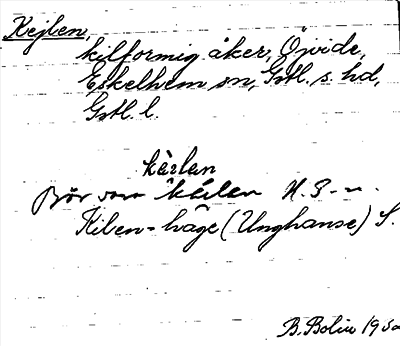 Kejlen,
kilformig åker, Öjvide,
Eskelhem sn, Gotl. s. hd,
Gotl. l.
kèilen
H. S-n.
Kilen-häge (Unghanse) S.
B. Bolin